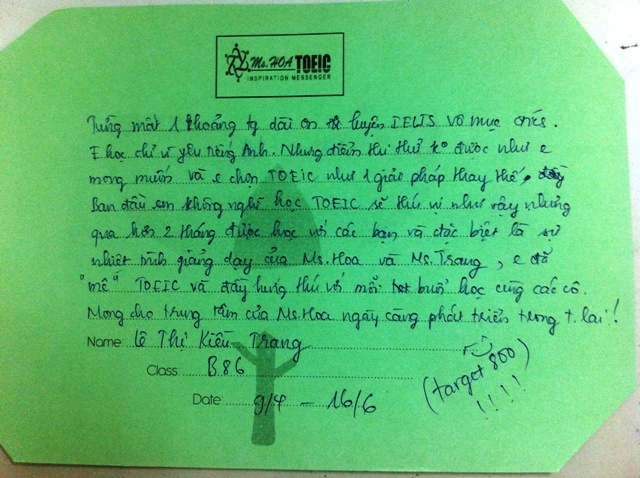 Ms. HOA TOEIC
INSPIRATION MESSENGER
Từng mất 1 khoảng tg dài ôn luyện IELTS vô mục đích.
E học chỉ vì yêu tiếng Anh. Nhưng điểm thi thử ko được như e
mong muốn và e chọn TOEIC như 1 giải pháp thay thế.
Ban đầu em không nghĩ học TOEIC sẽ thú vị như vậy nhưng
qua hơn 2 tháng được học với các bạn và đặc biệt là sự
nhiệt tình giảng dạy của Ms. Hoa và Ms. Trang, e đã
"mê" TOEIC và đầy hứng thú với mỗi buổi học cùng các cô.
Mong cho trung tâm của Ms. Hoa ngày càng phát triển trong t.lai!
Name Lê Thị Kiều Trang
Class B86
Date 9/4 - 16/6
(target 800)
!!!!